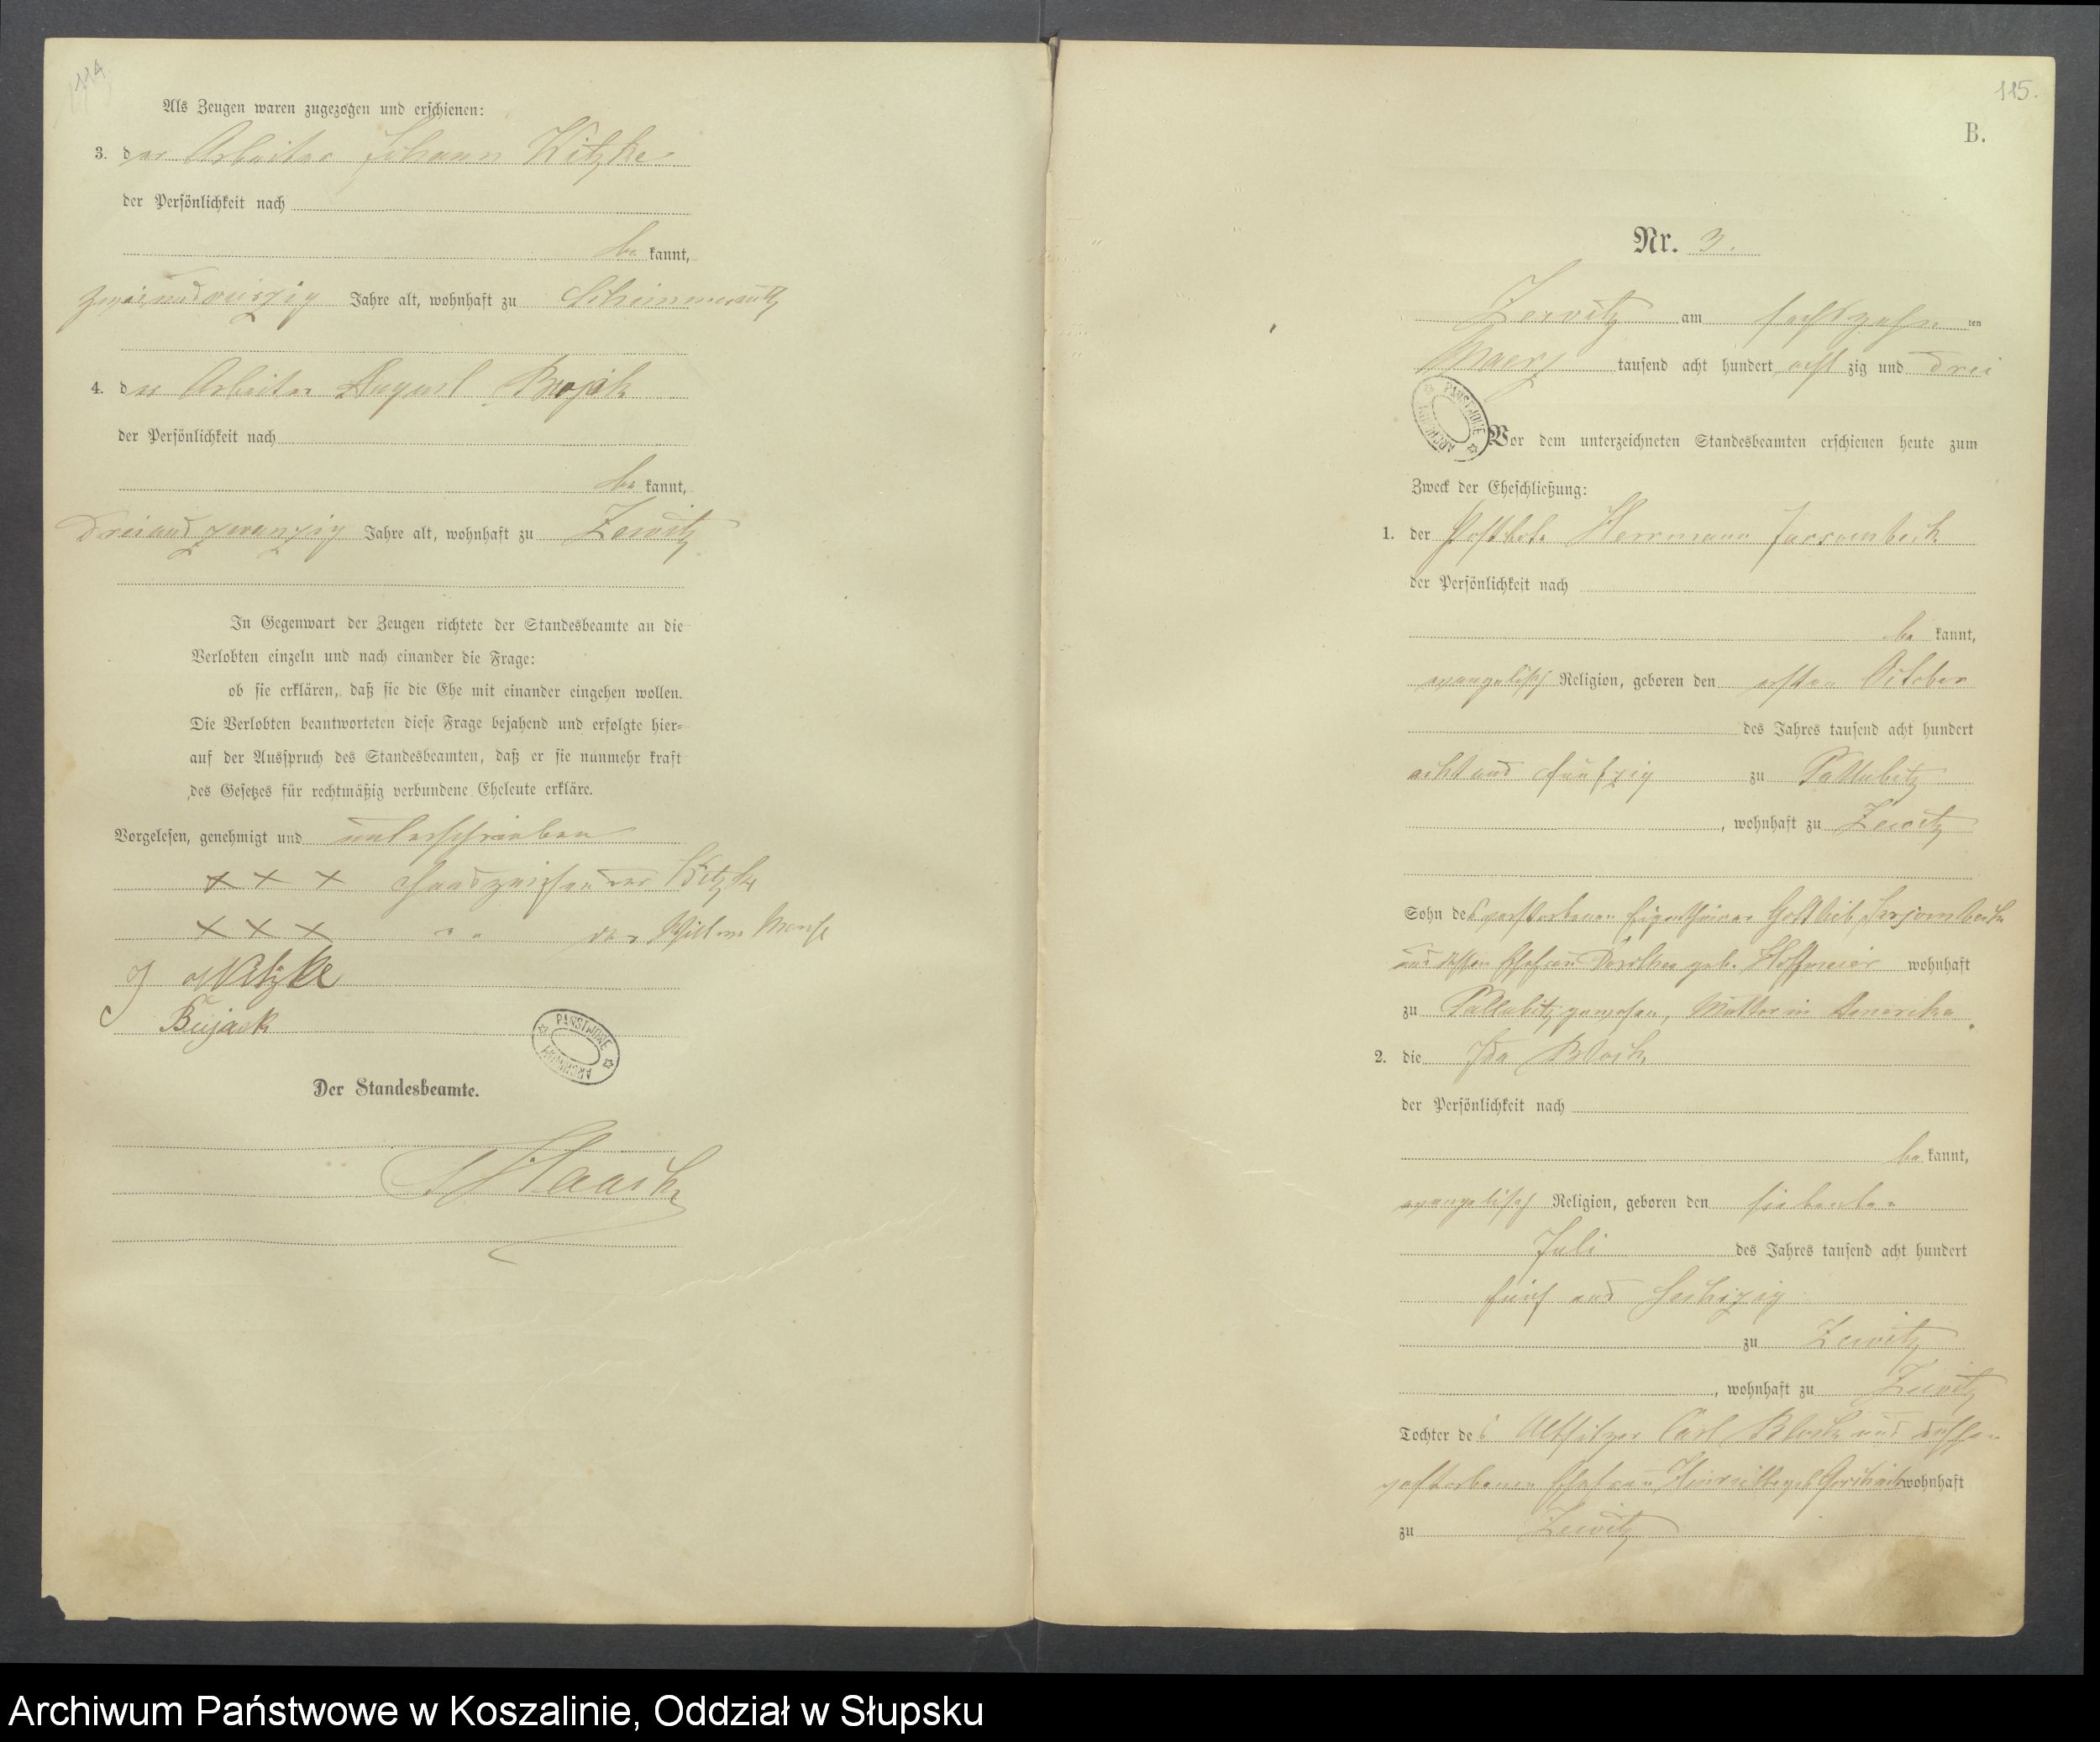 114
Als Zeugen waren zugezogen und erschienen:
3. der Arbeiter Johann Witzke
der Persönlichkeit nach
be kannt,
zweiundvierzig Jahre alt, wohnhaft zu Schimmerwitz
4. der Arbeiter August Bujack
der Persönlichkeit nach
be kannt,
dreiundzwanzig Jahre alt, wohnhaft zu Zewitz
In Gegenwart der Zeugen richtete der Standesbeamte an die
Verlobten einzeln und nach einander die Frage:
ob sie erklären, daß sie die Ehe mit einander eingehen wollen.
Die Verlobten beantworteten diese Frage bejahend und erfolgte hier-
auf der Ausspruch des Standesbeamten, daß er sie nunmehr kraft
des Gesetzes für rechtmäßig verbundene Eheleute erkläre.
Vorgelesen, genehmigt und unterschrieben
+ + + Handzeichen der Witzke
+ + + " " der Wittwe
J Witzke
Bujack
PAŃSTWOWE ARCHIWUM
Der Standesbeamte.
Haack
115.
B.
Nr. 3.
Zewitz am sechszehn ten
Maerz tausend acht hundert acht zig und drei
PAŃSTWOWE ARCHIWUM
Vor dem unterzeichneten Standesbeamten erschienen heute zum
Zweck der Eheschließung:
1. der Postbote Herrmann Jarsombeck
der Persönlichkeit nach
be kannt,
evangelisch Religion, geboren den ersten October
des Jahres tausend acht hundert
acht und fünfzig zu Pallubitz
, wohnhaft zu Zewitz
Sohn des verstorbenen Eigenthümer Gottlieb Jarsombeck
und dessen Ehefrau Dorothea geb. Hoffmeier wohnhaft
zu Pallubitz gewesen, Mutter in Amerika.
2. die Ida Block
der Persönlichkeit nach
be kannt,
evangelisch Religion, geboren den siebenten
Juli des Jahres tausend acht hundert
fünf und sechszig
zu Zewitz
, wohnhaft zu Zewitz
Tochter des Altsitzer Carl Block und dessen
verstorbenen Ehefrau geb. wohnhaft
zu Zewitz
Archiwum Państwowe w Koszalinie, Oddział w Słupsku